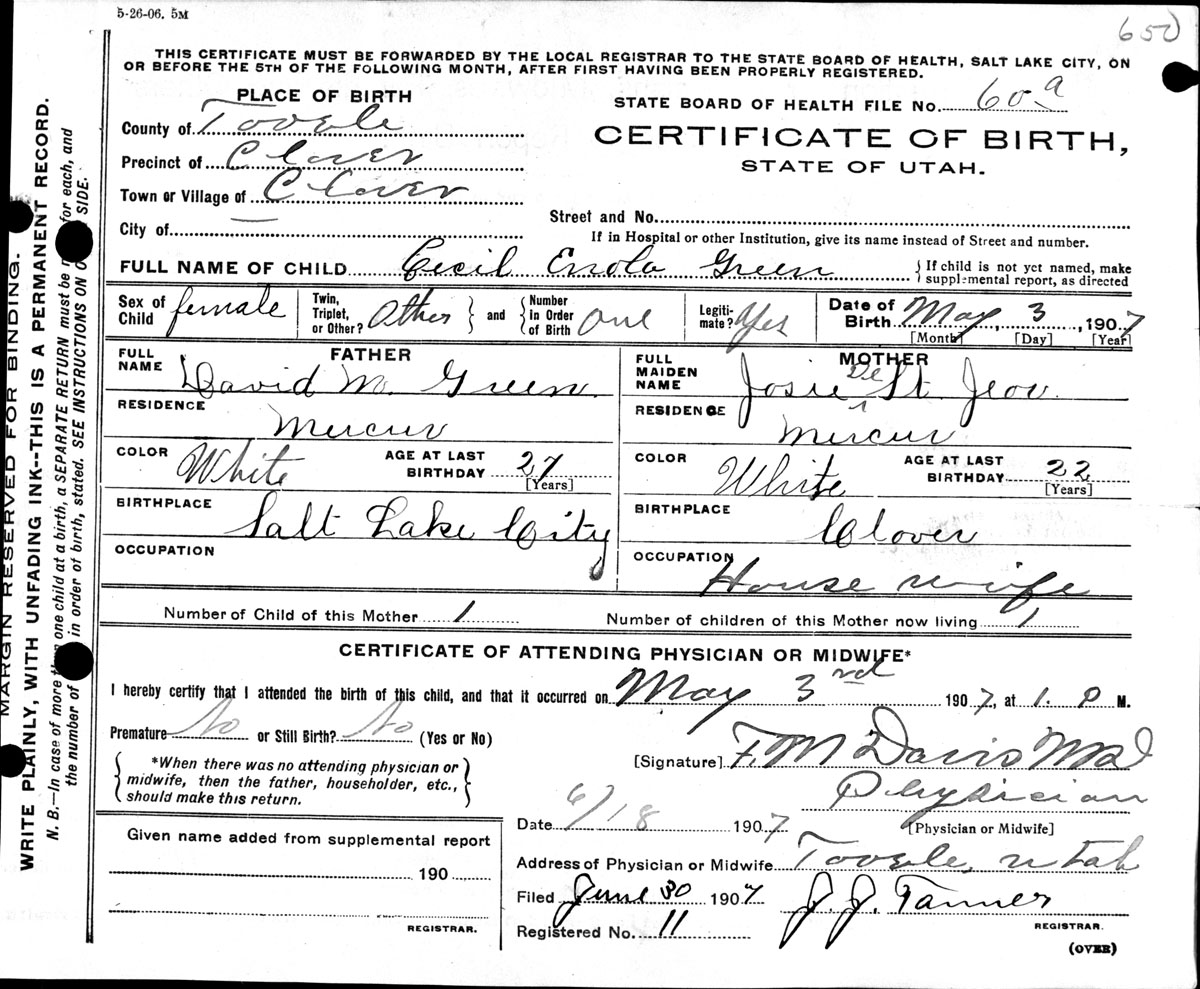 5-26-06. 5M
650
THIS CERTIFICATE MUST BE FORWARDED BY THE LOCAL REGISTRAR TO THE STATE BOARD OF HEALTH, SALT LAKE CITY, ON
OR BEFORE THE 5TH OF THE FOLLOWING MONTH, AFTER FIRST HAVING BEEN PROPERLY REGISTERED.
PLACE OF BIRTH
County of Tooele
Precinct of Clover
Town or Village of Clover
City of
STATE BOARD OF HEALTH FILE No. 60 a
CERTIFICATE OF BIRTH,
STATE OF UTAH.
Street and No.
If in Hospital or other Institution, give its name instead of Street and number.
FULL NAME OF CHILD Cecil Enola Green
If child is not yet named, make
supplemental report, as directed
Sex of Child female
Twin, Triplet, or Other? Other and Number in Order of Birth One
Legiti-mate? Yes
Date of Birth May 3, 1907
[Month] [Day] [Year]
FATHER
FULL NAME David M. Green
RESIDENCE Mercur
COLOR White AGE AT LAST BIRTHDAY 27
[Years]
BIRTHPLACE Salt Lake City
OCCUPATION
MOTHER
FULL MAIDEN NAME Josie De St. Jeor
RESIDENCE Mercur
COLOR White AGE AT LAST BIRTHDAY 22
[Years]
BIRTHPLACE Clover
OCCUPATION House wife
Number of Child of this Mother 1 Number of children of this Mother now living 1
CERTIFICATE OF ATTENDING PHYSICIAN OR MIDWIFE*
I hereby certify that I attended the birth of this child, and that it occurred on May 3rd 1907, at 1. P M.
Premature No or Still Birth? No (Yes or No)
*When there was no attending physician or
midwife, then the father, householder, etc.,
should make this return.
[Signature] F. M Davis MD
Physician
[Physician or Midwife]
Date 6/18 1907
Address of Physician or Midwife Tooele, Utah
Filed June 30 1907 J. J. Tanner
REGISTRAR.
Registered No. 11
(OVER)
Given name added from supplemental report
190
REGISTRAR.
MARGIN RESERVED FOR BINDING.
WRITE PLAINLY, WITH UNFADING INK--THIS IS A PERMANENT RECORD.
N. B.—In case of more than one child at a birth, a SEPARATE RETURN must be for each, and
the number of in order of birth, stated. SEE INSTRUCTIONS ON SIDE.